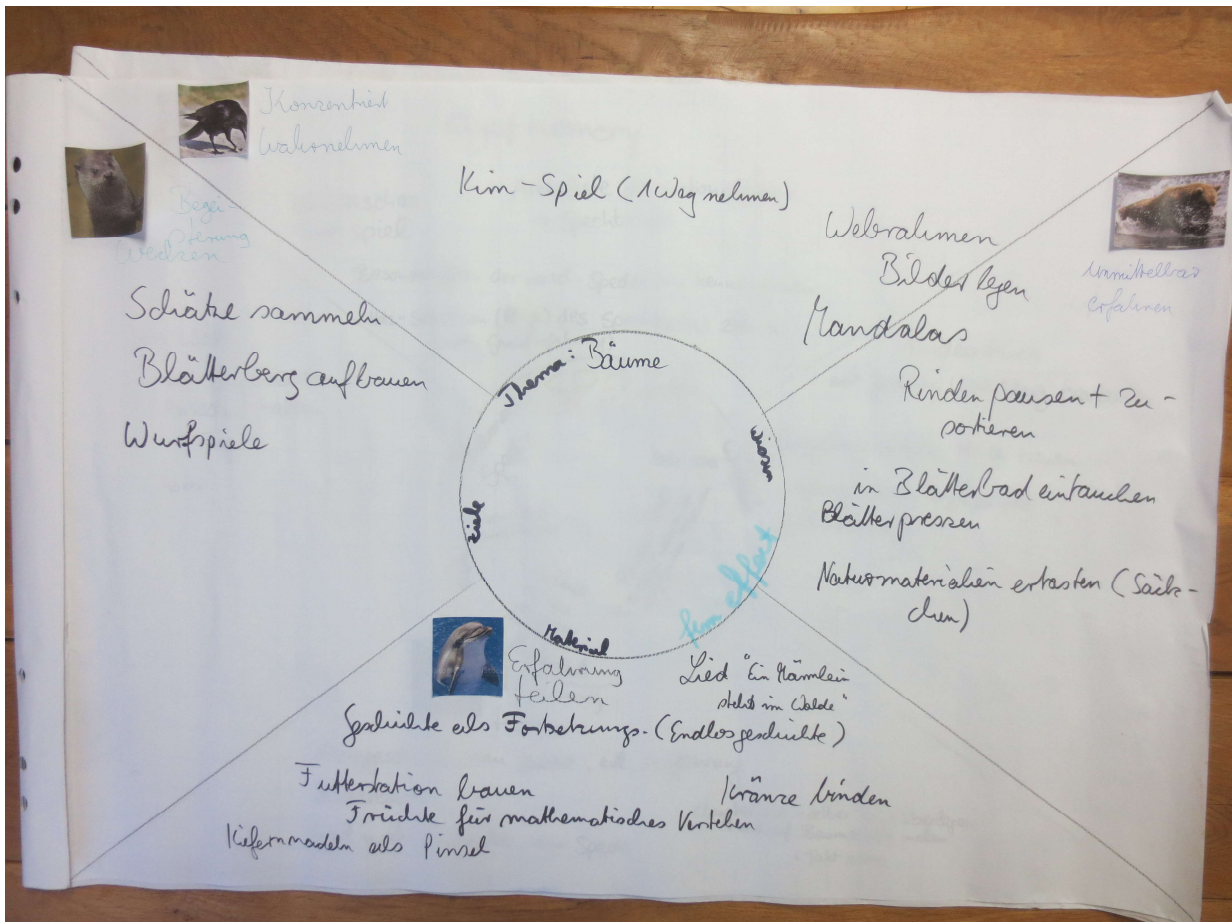 Konzentriert
Wahrnehmen
Begei-
sterung
Wecken
Kim-Spiel (1 Weg nehmen)
Unmittelbar
erfahren
Webrahmen
Bilder legen
Mandalas
Rinden pausen + zu-
sortieren
in Blätterbad eintauchen
Blätter pressen
Naturmaterialien ertasten (Säck-
chen)
Schätze sammeln
Blätterberg aufbauen
Wurfspiele
Thema: Bäume
Wissen
Ziele
Material
Lerneffekt
Erfahrung
teilen
Lied "Ein Männlein
steht im Walde"
Geschichte als Fortsetzungs- (Endlosgeschichte)
Futterstation bauen
Kränze binden
Früchte für mathematisches Verstehen
Kiefernnadeln als Pinsel